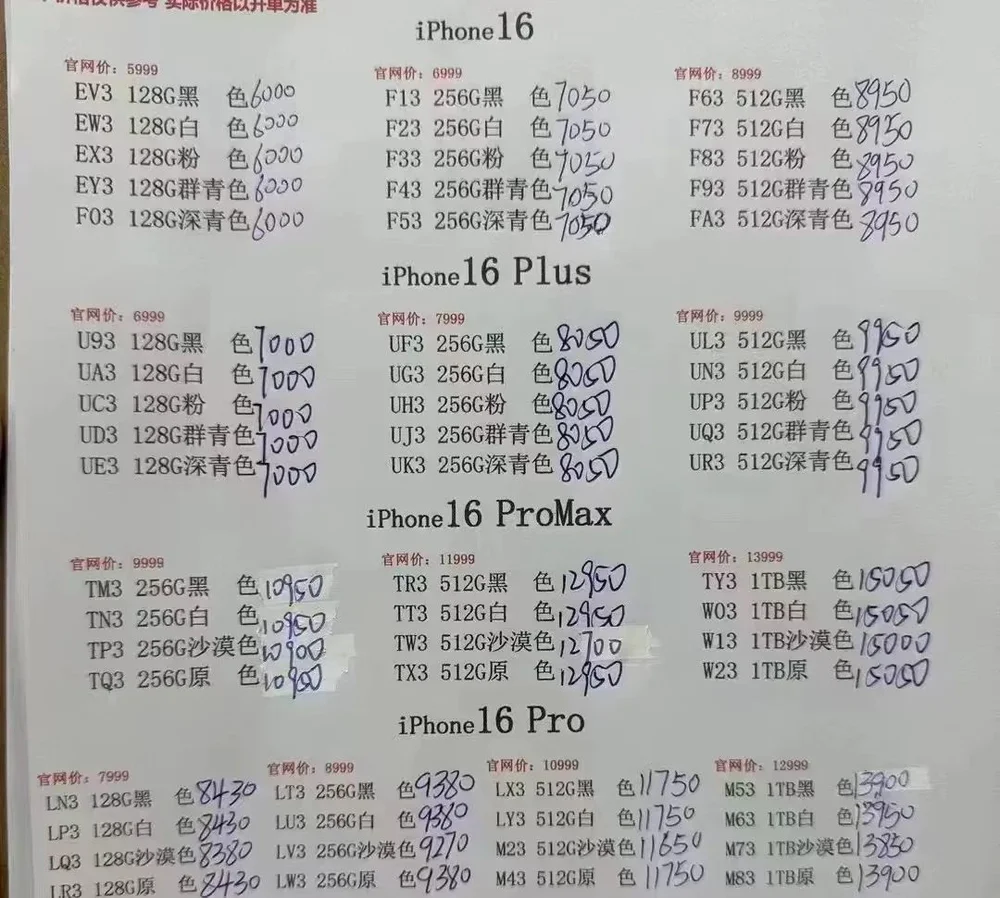 价格仅供参考 实际价格以开单为准
iPhone16
官网价：5999 官网价：6999 官网价：8999
EV3 128G黑 色6000 F13 256G黑 色7050 F63 512G黑 色8950
EW3 128G白 色6000 F23 256G白 色7050 F73 512G白 色8950
EX3 128G粉 色6000 F33 256G粉 色7050 F83 512G粉 色8950
EY3 128G群青色6000 F43 256G群青色7050 F93 512G群青色8950
F03 128G深青色6000 F53 256G深青色7050 FA3 512G深青色8950
iPhone16 Plus
官网价：6999 官网价：7999 官网价：9999
U93 128G黑 色7000 UF3 256G黑 色8050 UL3 512G黑 色9950
UA3 128G白 色7000 UG3 256G白 色8050 UN3 512G白 色9950
UC3 128G粉 色7000 UH3 256G粉 色8050 UP3 512G粉 色9950
UD3 128G群青色7000 UJ3 256G群青色8050 UQ3 512G群青色9950
UE3 128G深青色7000 UK3 256G深青色8050 UR3 512G深青色9950
iPhone16 ProMax
官网价：9999 官网价：11999 官网价：13999
TM3 256G黑 色10950 TR3 512G黑 色12950 TY3 1TB黑 色15050
TN3 256G白 色10950 TT3 512G白 色12950 W03 1TB白 色15050
TP3 256G沙漠色10900 TW3 512G沙漠色12700 W13 1TB沙漠色15000
TQ3 256G原 色10950 TX3 512G原 色12950 W23 1TB原 色15050
iPhone16 Pro
官网价：7999 官网价：8999 官网价：10999 官网价：12999
LN3 128G黑 色8430 LT3 256G黑 色9380 LX3 512G黑 色11750 M53 1TB黑 色13900
LP3 128G白 色8430 LU3 256G白 色9380 LY3 512G白 色11750 M63 1TB白 色13950
LQ3 128G沙漠色8380 LV3 256G沙漠色9270 M23 512G沙漠色11650 M73 1TB沙漠色13850
LR3 128G原 色8430 LW3 256G原 色9380 M43 512G原 色11750 M83 1TB原 色13900